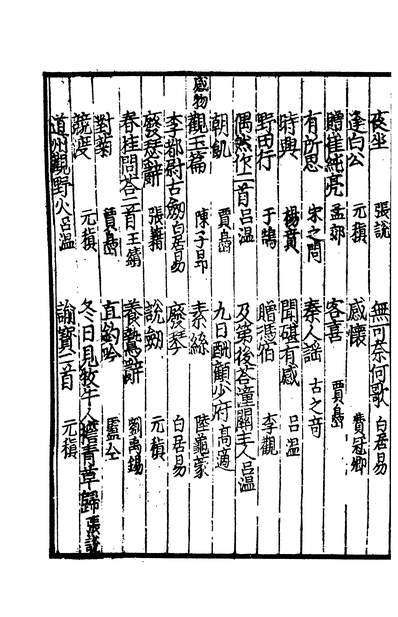 夜坐 張說 無可奈何歌 白居易
逢白公 元稹 感懷 費冠卿
贈崔純亮 孟郊 客喜 賈島
有所思 宋之問 秦人謠 古之奇
時興 楊賁 聞砧有感 呂溫
野田行 于鵠 贈馮伯 李觀
偶然作二首 呂溫 及第後荅潼關主人 呂溫
朝飢 賈島 九日酬顧少府 高適
感物
觀玉篇 陳子昂 素絲 陸龜蒙
李都尉古劔 白居易 廢琴 白居易
廢瑟辭 張籍 說劔 元稹
春桂問荅二首 王績 養鷙辭 劉禹錫
對菊 賈島 直鈎吟 盧仝
競渡 元稹 冬日見牧牛人擔青草歸 張說
道州觀野火 呂溫 諭寶二首 元稹